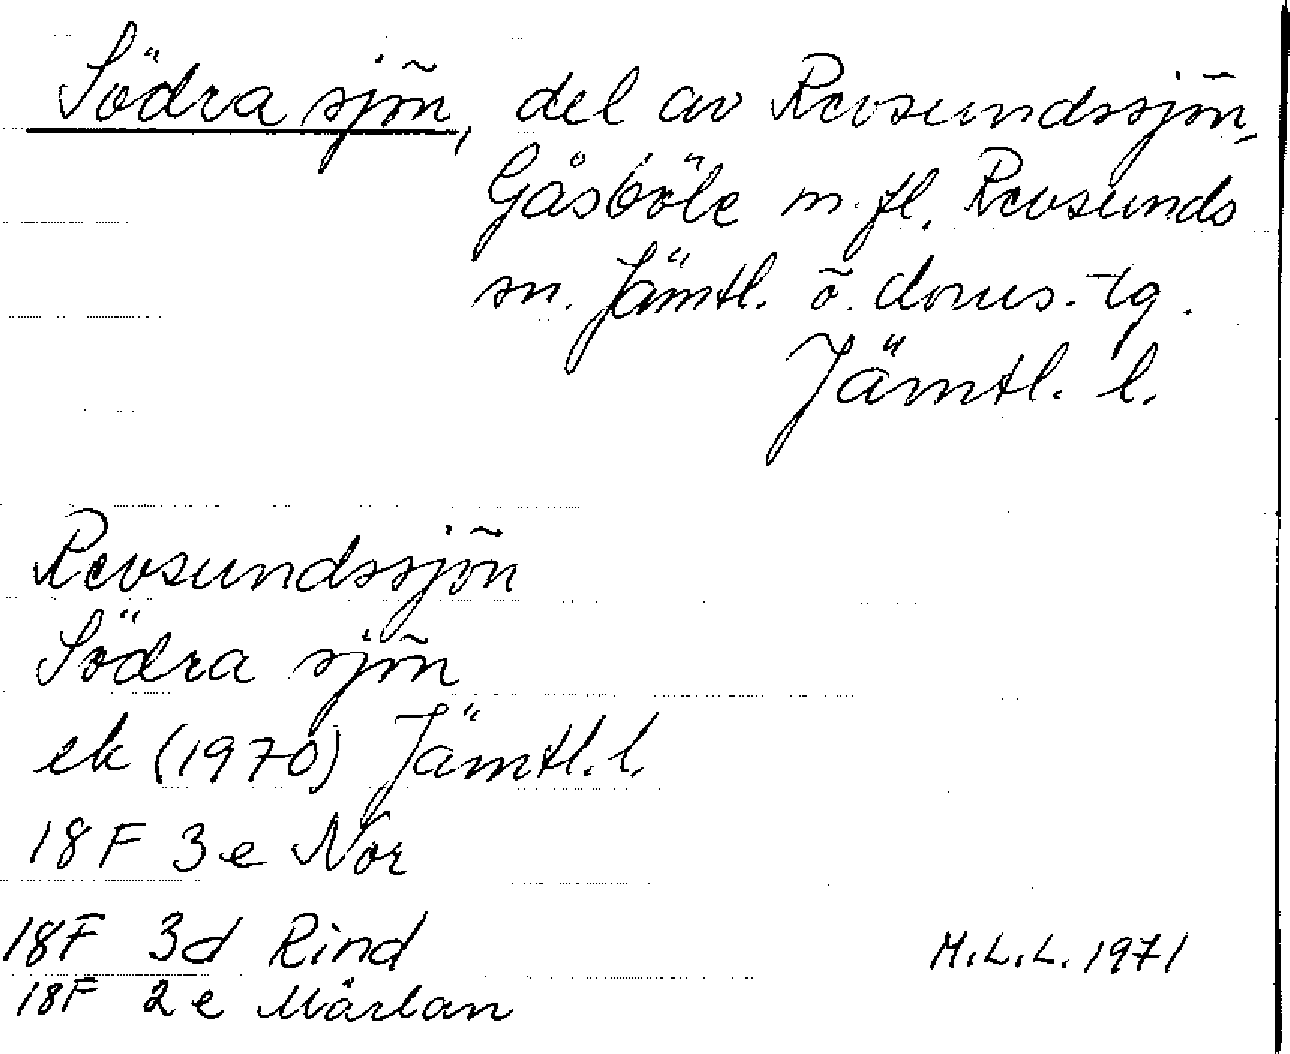 Södra sjön, del av Revsundssjön,
Gåsböle m. fl. Revsunds
sn. Jämtl. ö. doms.-tg.
Jämtl. l.
Revsundssjön
Södra sjön
ek (1970) Jämtl. l.
18F 3e Nor
18F 3d Rind
18F 2e Mårlan
M.L.L. 1971